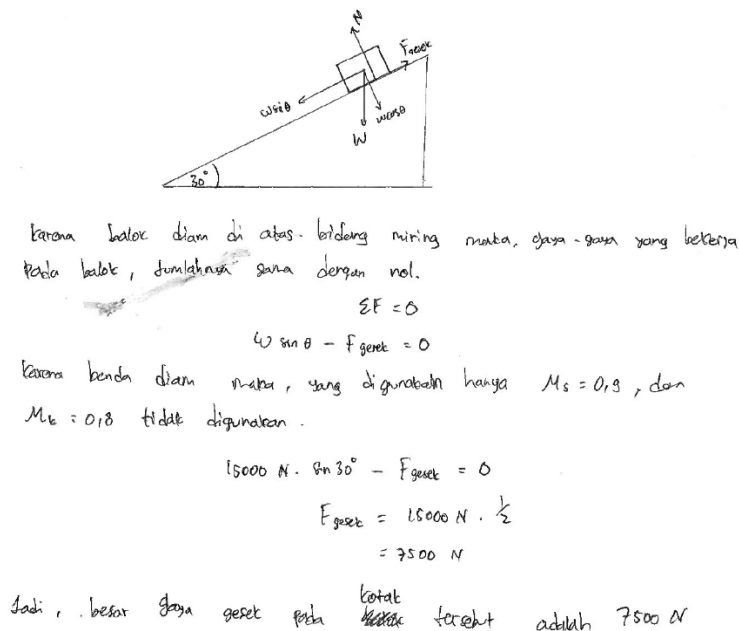 N
F gesek
w sin θ
w cos θ
W
30°
Karena balok diam di atas bidang miring maka, gaya-gaya yang bekerja
pada balok, Jumlahnya sama dengan nol.
ΣF = 0
W sin θ - F gesek = 0
Karena benda diam maka, yang digunakan hanya Ms = 0,9, dan
Mk = 0,8 tidak digunakan.
15000 N. Sin 30° - F gesek = 0
F gesek = 15000 N . 1/2
= 7500 N
kotak
Jadi, besar gaya gesek pada tersebut adalah 7500 N